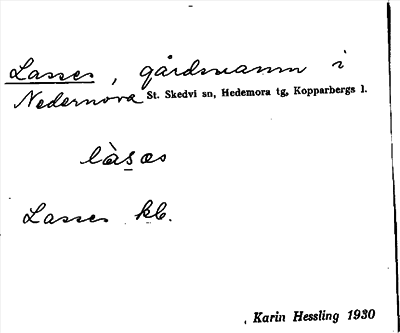 Lasses, gårdsnamn i
Nedernora St. Skedvi sn, Hedemora tg, Kopparbergs l.
làsæs
Lasses kb.
Karin Hessling 1930